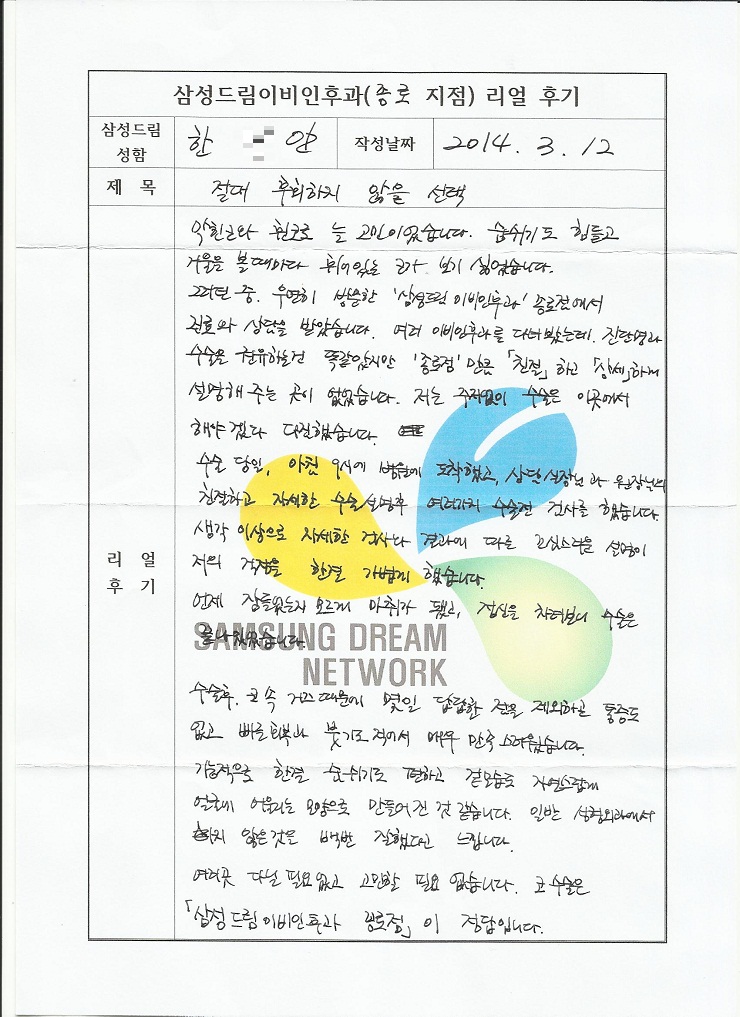 삼성드림이비인후과(종로 지점) 리얼 후기
삼성드림
성함
한 안
작성날짜
2014. 3. 12
제 목
절대 후회하지 않을 선택
리 얼
후 기
휜코로 늘 고민이었습니다. 숨쉬기도 힘들고
거울을 볼때마다 휘어있는 코가 보기 싫었습니다.
그러던 중. 우연히 방문한 '삼성드림이비인후과' 종로점에서
진료와 상담을 받았습니다. 여러 이비인후과를 다녀봤는데. 진단명과
수술을 권유하는건 똑같았지만 '종로점' 만큼 「친절」하고 「상세」하게
설명해 주는 곳이 없었습니다. 저는 주저없이 수술은 이곳에서
해야겠다 다짐했습니다.
수술 당일, 아침 9시에 병원에 도착했고, 상담실장님과 원장님의
친절하고 자세한 수술설명후 여러가지 수술전 검사를 했습니다.
생각 이상으로 자세한 검사나 결과에 따른 설명이
저의 걱정을 한결 가볍게 했습니다.
언제 잠들었는지 모르게 마취가 됐고, 정신을 차려보니 수술은
끝나있었습니다.
SAMSUNG DREAM
NETWORK
수술후. 코 속 거즈때문에 몇일 답답한 점을 제외하곤 통증도
없고 빠른회복과 붓기도 적어서 매우 만족스러웠습니다.
기능적으로 한결 숨쉬기도 편하고 겉모습도 자연스럽게
얼굴에 어울리는 모양으로 만들어진 것 같습니다. 일반 성형외과에서
하지 않은것을 백번 잘했다고 느낍니다.
여러곳 다닐 필요없고 고민할 필요 없습니다. 코 수술은
「삼성드림이비인후과 종로점」이 정답입니다.